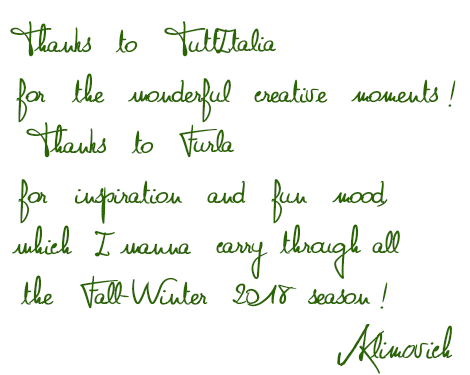 Thanks to TuttItalia
for the wonderful creative moments!
Thanks to Furla
for inspiration and fun mood,
which I wanna carry through all
the Fall-Winter 2018 season!
AKlimovich